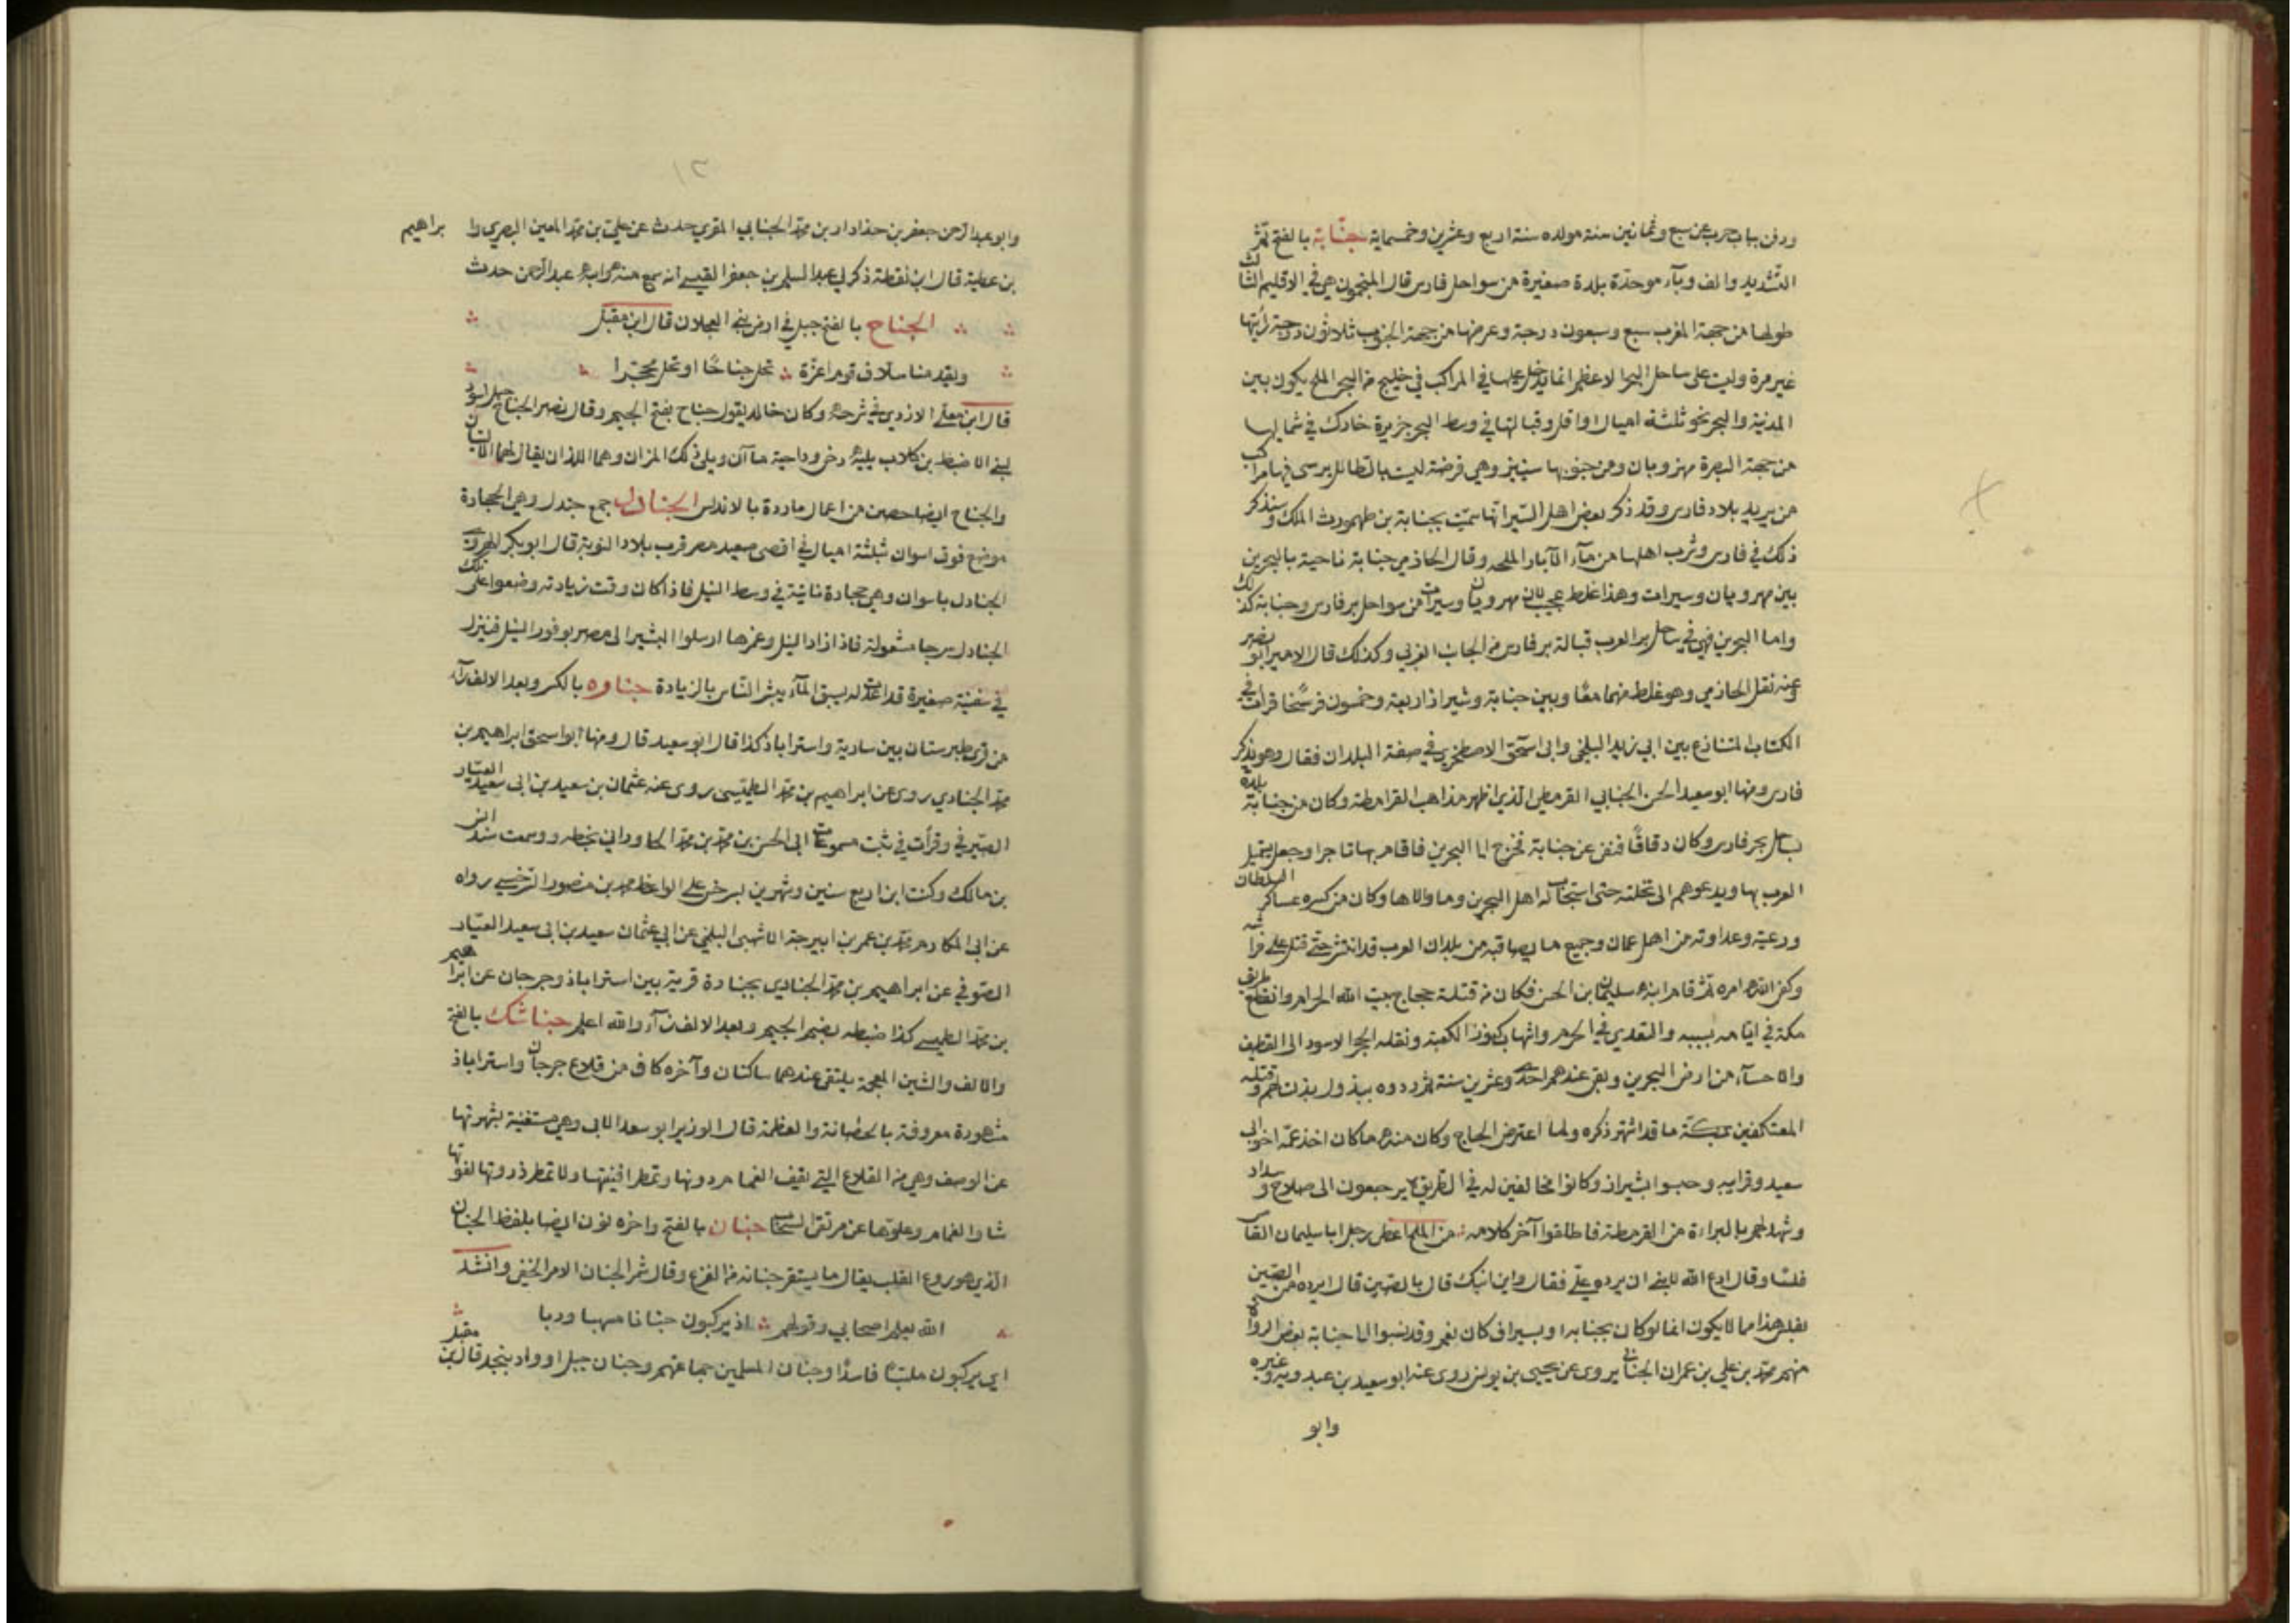 ودفن بباب حرب عن سبع وثمانين سنة مولده سنة اربع وعشرين وخمسماية جنّابة بالفتح ثمّ
التشديد والف وبآء موحدّة بلدة صغيرة من سواحل فارس قال المنجمون هي في الاقليم الثالث
طولها من جهة المغرب سبع وسبعون درجة وعرضها من جهة الجنوب ثلاثون درجة رايتها
غير مرة وليت على ساحل البحر الاعظم انما يدخل عليها في المراكب في خليج من البحر الملح يكون بين
المدينة والبحر نحو ثلثة اميال او اقل وقبالتها في وسط البحر جزيرة خارك في شماليها
من جهة البصرة مهزوبان ومن جنوبها سينيز وهي فرضة ليت بالطائل يرسى فيها مراكب
من يريد بلاد فارس وقد ذكر بعض اهل السّير انها سميّت بجنابة بن طهمورث الملك وسنذكر
ذلك في فارس وشرب اهلها من مآء الآبار الملحه وقال الحازمي جنابة ناحية بالبحرين
بين مهروبان وسيراف وهذا غلط عجيب لان مهروبان وسيراف من سواحل بر فارس وجنابة كذلك
واما البحرين فهي في ساحل بر العرب قبالة بر فارس من الجانب الغربي وكذلك قال الامير ابو نصر
وعنه نقل الحازمي وهو غلط منهما معًا وبين جنابة وشيراز اربعة وخمسون فرسخًا قرات في
الكتاب المتنازع بين ابي زيد البلخي وابى اسحق الاصطخري في صفة البلدان فقال وهو يذكر
فارس ومنها ابو سعيد الحسن الجنابي القرمطي الذي اظهر مذاهب القرامطة وكان من جنابة بلدة
بساحل بحر فارس وكان دقاقًا فنفى عن جنابة فخرج الى البحرين فاقام بها تاجرا وجعل يستميل
العرب بها ويدعوهم الى نحلته حتى استجاب له اهل البحرين وما والاها وكان من كسره عساكر السلطان
ورعيته وعداوته من اهل عمان وجميع ما يصاقبه من بلدان العرب قد انتشر حتى قتل على فراشه
وكفى الله امره ثم قام ابنه سليمان بن الحسن فكان من قتلة حجاج بيت الله الحرام وانقطع طريق
مكة في ايامه بسببه والتعدي في الحرم وانتهاب كنوز الكعبة ونقله الحجر الاسود الى القطيف
والاحسآء من ارض البحرين وبقي عندهم احدى وعشرين سنة ثم ردوه ببذول بذلت لهم وقتله
المعتكفين بمكة ما قد اشتهر ذكره ولما اعترض الحاج وكان منه ما كان اخذ عمّه اخو ابي
سعيد وقرايبه وحبسوا بشيراز وكانوا مخالفين له في الطريق يرجعون الى صلاح وسداد
وشهد لهم بالبراءة من القرمطة فاطلقوا آخر كلامه من الملح اعطى رجل ابا سليمان القاص
فلسًا وقال ادع الله لابني ان يرده علي فقال واين ابنك قال بالصين قال ايرده من الصين
بفلس هذا مما لا يكون انما لو كان بجنابه او بسيراف كان نعم وقد نسبوا الى جنابة بعض الرواة
منهم محمد بن علي بن عمران الجنابي يروى عن يحيى بن يونس روى عنه ابو سعيد بن عبدويه وغيره
وابو
٢١
وابو عبد الرحمن جعفر بن حداد ار بن محمد الجنابي المقري حدث عن علي بن محمد المعين البصري وا براهيم
بن عطية قال ابن نقطة ذكر لي عبد السلم بن جعفر القيسي انه سمع منه وابنه عبد الرحمن حدث
الجناح بالفتح جبل في ارض بني العجلان قال ابن مقبل
ويقدمنا سلاف قوم اعزّة تحل جناحًا او تحل محجّرا
قال ابن معلى الازدي في شرحه وكان خالد يقول جناح بضم الجيم وقال نصر الجناح جبل اسود
لبني الاضبط بن كلاب يليه دخي وداحية مآآن ويلي ذلك المران وهما اللذان يقال لهما التليان
والجناح ايضا حصن من اعمال ماردة بالاندلس الجنادل جمع جندل وهي الحجارة
موضع فوق اسوان بثلثة اميال في اقصى صعيد مصر قرب بلاد النوبة قال ابو بكر الهروي
الجنادل باسوان وهي حجارة ناتئة في وسط النيل فاذا كان وقت زيادته وضعوا على تلك
الجنادل سرجا مشعولة فاذا زاد النيل وغمرها ارسلوا البشير الى مصر بوفور النيل فينزل
في سفينة صغيرة قد اعدت له يسبق المآء يبشر الناس بالزيادة جناره بالكسر وبعد الالف رآء
من قرى طبرستان بين سارية واستراباذ كذا قال ابو سعيد قال ومنها ابو اسحق ابراهيم بن
محمد الجناري يروى عن ابراهيم بن محمد الطميسى روى عنه عثمان بن سعيد بن ابى سعيد العيّار
الصيرفي وقرأت في ثبت مسموعات ابى الحسن بن محمد بن محمد الخاوراني بخطه وسمعت مسند انس
بن مالك وكنت ابن اربع سنين وشهرين بسرخس على الواعظ محمد بن منصور السرخسي رواه
عن ابى المكارم محمد بن عمر بن اميرجة الاشهبى البلخي عن ابي عثمان سعيد بن ابى سعيد العيّار
الصوفي عن ابراهيم بن محمد الجناري بجنارة قرية بين استراباذ وجرجان عن ابراهيم
بن محمد الطميسي كذا ضبطه بضم الجيم وبعد الالف رآء والله اعلم جناشك بالفتح
والالف والشين المعجمة يلتقي عندهما ساكنان وآخره كاف من قلاع جرجان واستراباذ
مشهورة معروفة بالحصانة والعظمة قال الوزير ابو سعد الابى وهي مستغنية بشهرتها
عن الوصف وهي من القلاع التي تقف الغمام دونها وتمطر افنيتها ولا تمطر ذروتها لفوتها
شاو الغمام وعلوها عن مرتقى السحاب جنان بالفتح واخره نون ايضا بلفظ الجنان
الذي هو روع القلب يقال ما يستقر جنانه من الفزع وقال شمر الجنان الامر الخفي وانشد
الله يعلم اصحابي وقولهم اذ يركبون جنانا مسهبا وربا
اي يركبون ملتبسًا فاسدًا وجنان المسلمين جماعتهم وجنان جبل او واد بنجد قال ابن مقبل